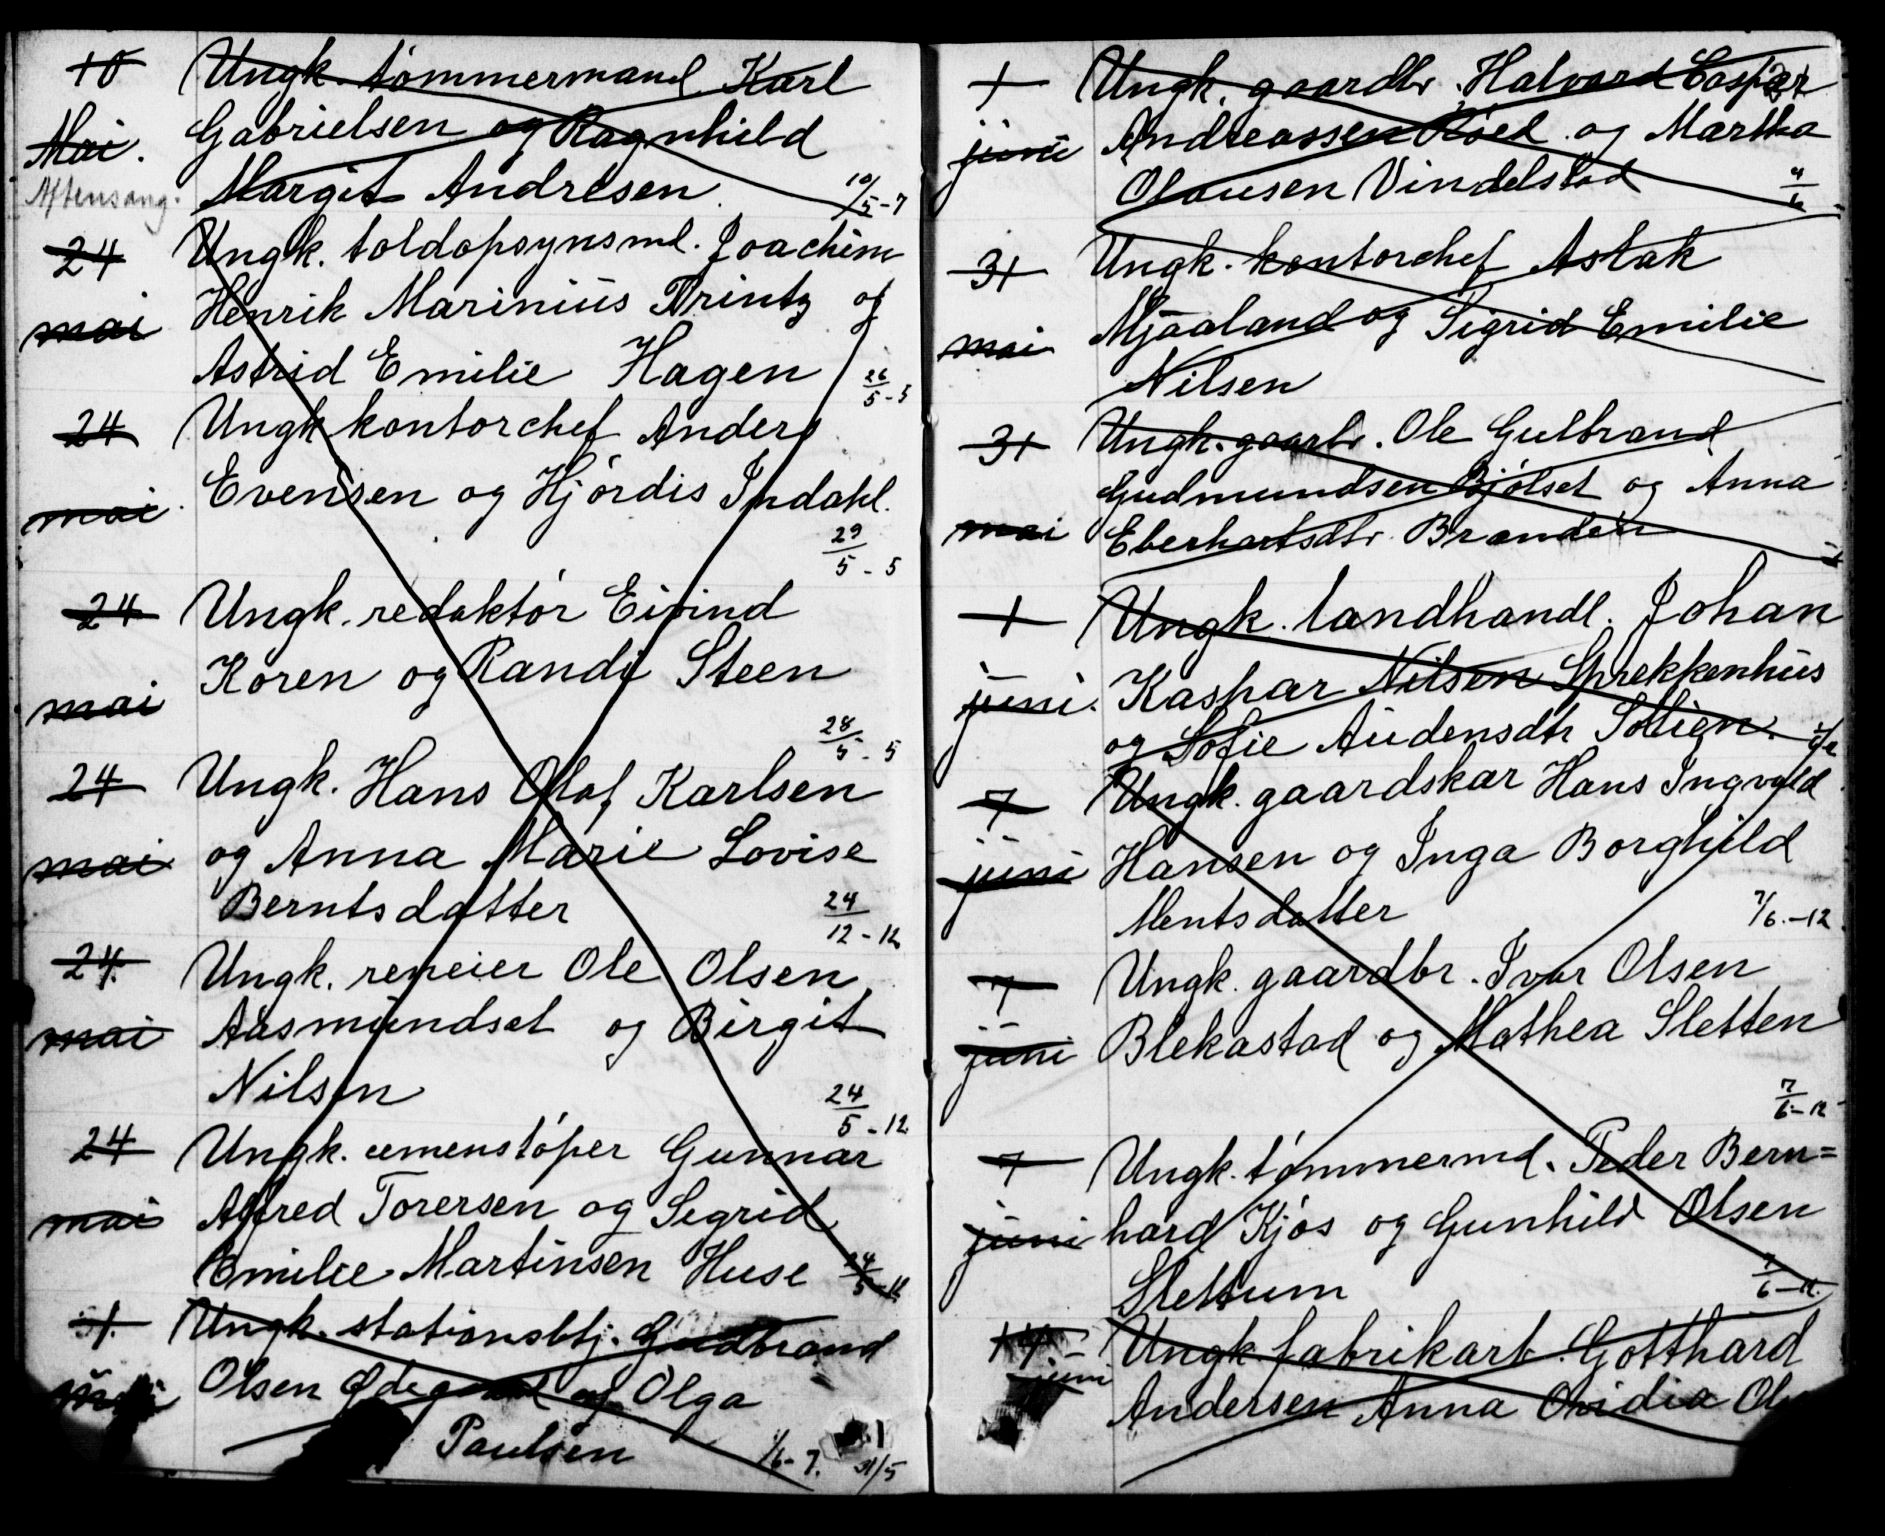 10 Ungk. tømmermand Karl
Mai. Gabrielsen og Ragnhild
Aftensang. Margit Andresen. 10/5-7
24 Ungk. toldopsynsmd. Joachim
mai Henrik Marinius Printz og
Astrid Emilie Hagen 26/5-5
24 Ungk kontorchef Anders
mai. Evensen og Hjørdis Indahl.
29/5-5
24 Ungk. redaktør Eivind
mai Koren og Randi Steen
28/5-5
24 Ungk. Hans Olaf Karlsen
mai og Anna Marie Lovise
Berntsdatter 24/12-12
24. Ungk. repeier Ole Olsen
mai Aasmundset og Birgit
Nilsen 24/5-12.
24 Ungk. cemenstøper Gunnar
mai Alfred Torersen og Sigrid
Emilie Martinsen Huse 24/5-12
31. Ungk. stationsbtj. Gudbrand
Olsen Ødegaard og Olga
Paulsen 1/6-7. 31/5
1 Ungk. gaardbr. Halvard Casper
juni Andreassen Røed og Martha
Olausen Vindelstad 4/6
31 Ungk. kontorchef Aslak
mai Mjaaland og Sigrid Emilie
Nilsen
31 Ungk. gaarbr. Ole Gulbrand
Gudmundsen Bjølset og Anna
mai Eberhartsdtr. Branden
1 Ungk. landhandl. Johan
juni. Kaspar Nilsen Sprekkenhus
og Sofie Audensdtr Sollien.
7 Ungk. gaardskar Hans Ingvald
juni Hansen og Inga Borghild
Mentsdatter 7/6.-12
7 Ungk. gaardbr. Ivar Olsen
juni Blekastad og Mathea Sletten
7/6-12
7 Ungk. tømmermd. Peder Bern=
juni hard Kjøs og Gunhild Olsen
Slettum 7/6-12.
14. Ungk fabrikarb. Gotthard
juni
Andersen Anna Ovidia